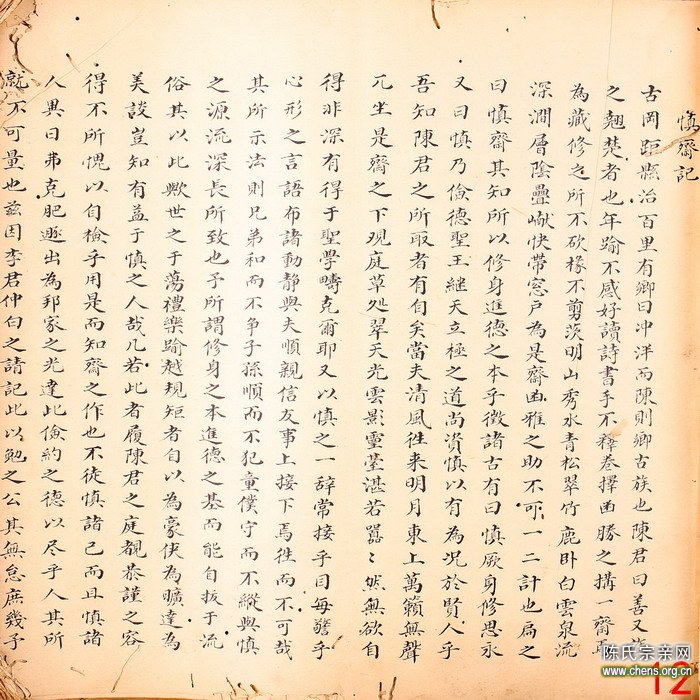 慎齋記
古岡距縣治百里有鄉曰冲洋而陳則鄉古族也陳君曰善又
之翹楚者也年踰不惑好讀詩書手不釋卷擇幽勝之搆一齋
為藏修之所不砍椽不剪茨明山秀水青松翠竹鹿卧白雲泉流
深澗層陰疊巘快帶窓戶為是齋幽雅之助不可一二計也扁之
曰慎齋其知所以修身進德之本乎徵諸古有曰慎厥身修思永
又曰慎乃儉德聖王継天立極之道尚資慎以有為况於賢人乎
吾知陳君之所取者有自矣當夫清風徃来明月東上萬籟無聲
兀坐是齋之下現庭草処翠天光雲影靈䑓湛若囂〻然無欲自
得非深有得于聖學疇克爾耶又以慎之一辞常接乎目每謷乎
心形之言語布諸動静與夫順親信友事上接下焉徃而不可哉
其所示法則兄弟和而不争子孫順而不犯童僕守而不縱與慎
之源流深長所致也予所謂修身之本進德之基而能自拔于流
俗其以此歟世之于蕩禮樂踰越規矩者自以為豪侠為曠達為
美談豈知有益于慎之人哉凡若此者履陳君之庭覩恭謹之容
得不所愧以自檢乎用是而知齋之作也不徒慎諸己而且慎諸
人異日弗克肥遯出為邦家之光達此儉約之德以尽乎人其所
就不可量也兹因李君仲白之請記此以勉之公其無怠庶幾乎
陈氏宗亲网
www.chens.org.cn
12